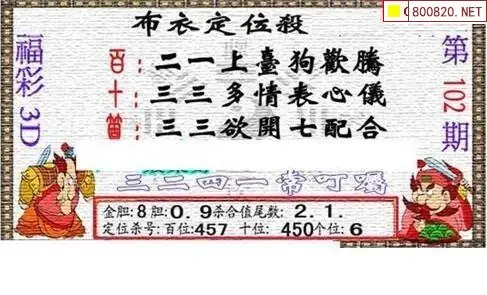 800820.NET
布衣定位殺
福彩3D
第102期
百：二一上臺狗歡騰
十：三三多情表心儀
個：三三欲開七配合
三二四一常叮囑
金胆:8胆:0.9杀合值尾数:2.1.
定位杀号:百位:457 十位:450个位:6